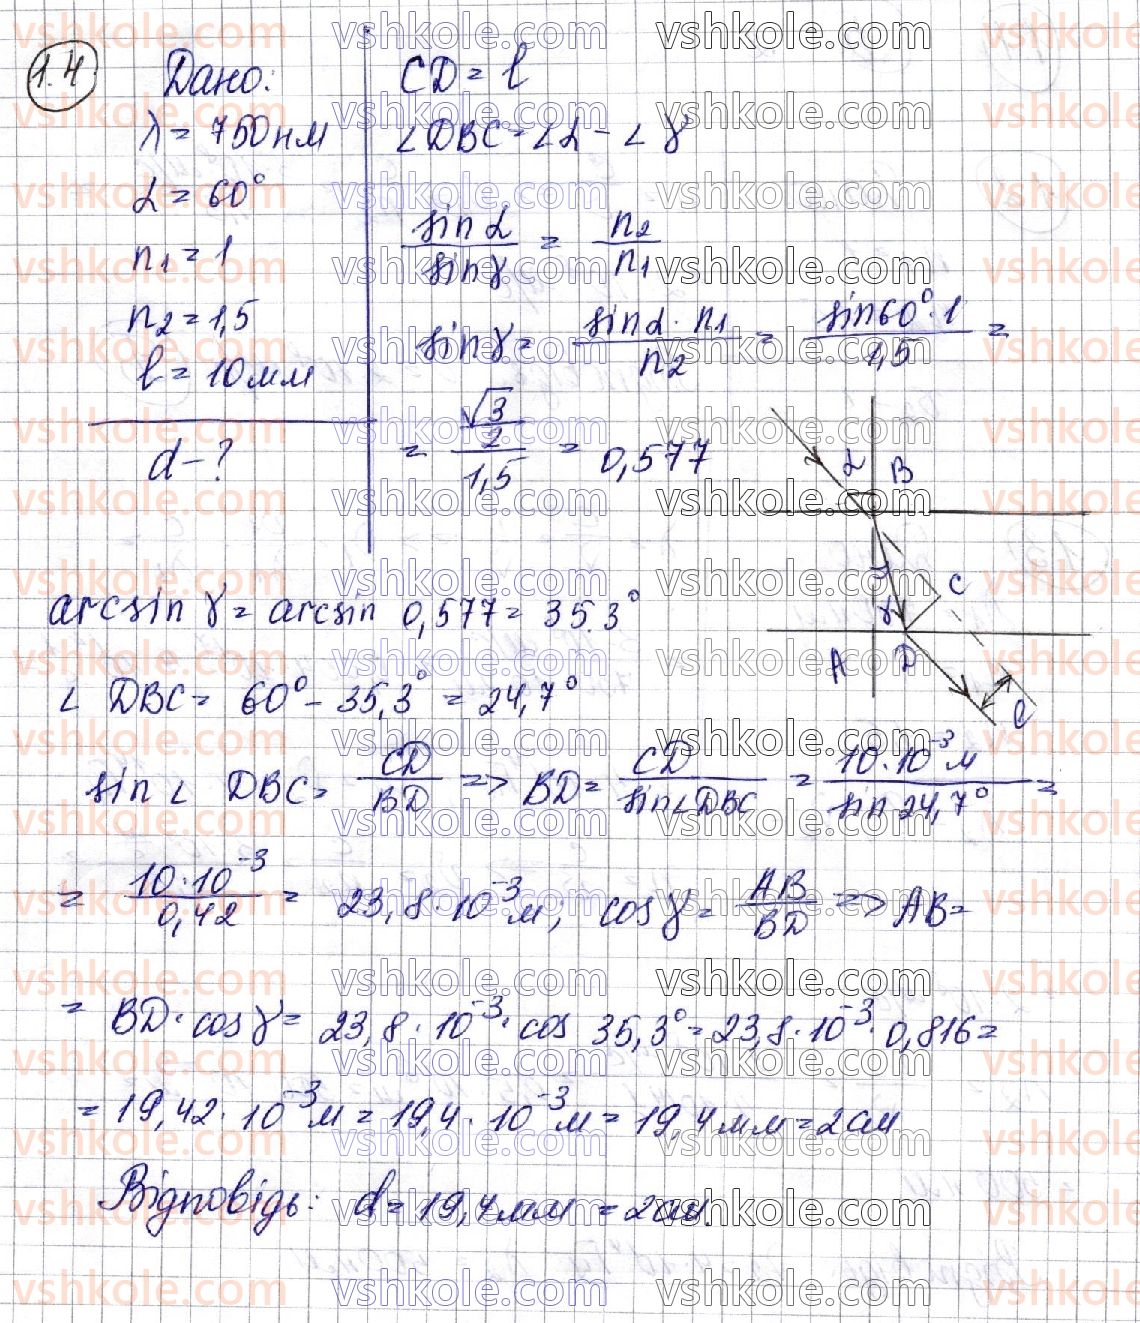 1.4
Дано:
λ = 750 нм
α = 60°
n₁ = 1
n₂ = 1,5
l = 10 мм
d - ?
CD = l
∠DBC = ∠α - ∠γ
sin α / sin γ = n₂ / n₁
sin γ = sin α · n₁ / n₂ = sin 60° · 1 / 1,5 =
= (√3/2) / 1,5 = 0,577
α B
γ C
γ
A D
l
arcsin γ = arcsin 0,577 = 35.3°
∠ DBC = 60° - 35,3° = 24,7°
sin ∠ DBC = CD / BD => BD = CD / sin∠DBC = 10·10⁻³ м / sin 24,7° =
= 10·10⁻³ / 0,42 = 23,8·10⁻³ м; cos γ = AB / BD => AB =
= BD · cos γ = 23,8·10⁻³ · cos 35,3° = 23,8·10⁻³ · 0,816 =
= 19,42·10⁻³ м = 19,4·10⁻³ м = 19,4 мм = 2 см
Відповідь: d = 19,4 мм = 2 см.
vshkole.com